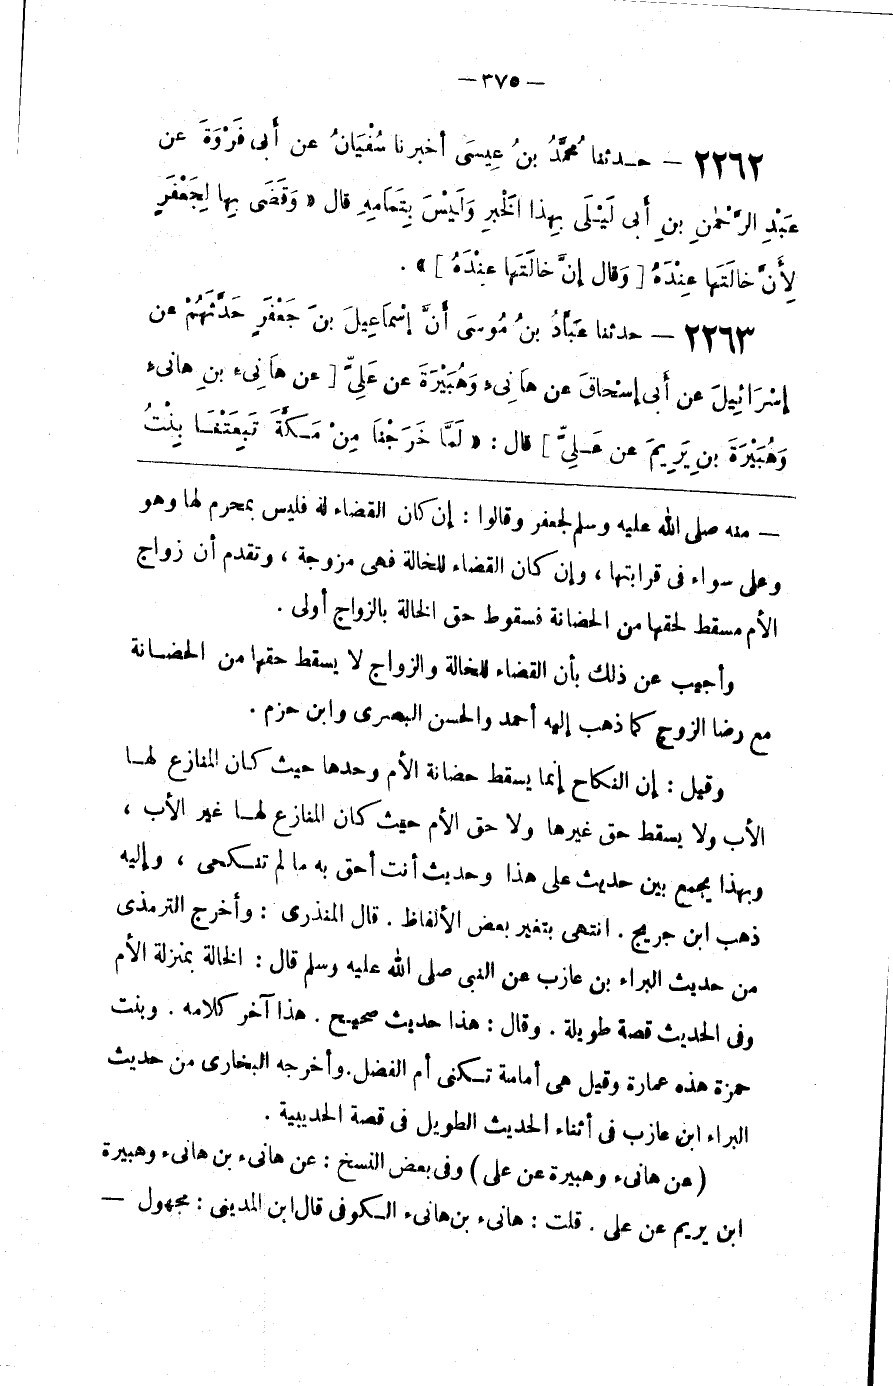 — ٣٧٥ —
٢٢٦٢ — حـدثنا مُحَمَّدُ بنُ عِيسَى أخبرنا سُفْيَانُ عن أَبى فَرْوَةَ عن
عَبْدِ الرَّحْمٰنِ بنِ أَبى لَيْلَى بِهذا الْخَبرِ وَلَيْسَ بِتَمَامِهِ قال « وَقَضَى بِها لِجَعْفَرٍ
لِأَنَّ خالَتَها عِنْدَهُ [ وَقال إنَّ خالَتَها عِنْدَهُ ] » .
٢٢٦٣ — حدثنا عَبَّادُ بنُ مُوسَى أَنَّ إسْمَاعِيلَ بنَ جَعْفَرٍ حَدَّثَهُمْ عن
إسْرَائِيلَ عن أَبى إسْحَاقَ عن هَانِىء وَهُبَيْرَةَ عن عَلِىٍّ [ عن هَانِىء بنِ هانىء
وَهُبَيْرَةَ بنِ يَرِيمَ عن عَـلِىٍّ ] قال : « لَمَّا خَرَجْنَا مِنْ مَـكَّةَ تَبِعَتْنَـا بِنْتُ
— منه صلى الله عليه وسلم لجعفر وقالوا : إن كان القضاء له فليس بمحرم لها وهو
وعلى سواء فى قرابتها ، وإن كان القضاء للخالة فهى مزوجة ، وتقدم أن زواج
الأم مسقط لحقها من الحضانة فسقوط حق الخالة بالزواج أولى .
وأجيب عن ذلك بأن القضاء للخالة والزواج لا يسقط حقها من الحضـانة
مع رضا الزوج كما ذهب إليه أحمد والحسن البصرى وابن حزم .
وقيل : إن النكاح إنما يسقط حضانة الأم وحدها حيث كان المنازع لهـا
الأب ولا يسقط حق غيرها ولا حق الأم حيث كان المنازع لهـا غير الأب ،
وبهذا يجمع بين حديث على هذا وحديث أنت أحق به ما لم تنـكحى ، وإليه
ذهب ابن جريج . انتهى بتغير بعض الألفاظ . قال المنذرى : وأخرج الترمذى
من حديث البراء بن عازب عن النبى صلى الله عليه وسلم قال : الخالة بمنزلة الأم
وفى الحديث قصة طويلة . وقال : هذا حديث صحيح . هذا آخر كلامه . وبنت
حمزة هذه عمارة وقيل هى أمامة تـكنى أم الفضل. وأخرجه البخارى من حديث
البراء ابن عازب فى أثناء الحديث الطويل فى قصة الحديبية .
( عن هانىء وهبيرة عن على ) وفى بعض النسخ : عن هانىء بن هانىء وهبيرة
ابن يريم عن على . قلت : هانىء بن هانىء الـكوفى قال ابن المدينى : مجهول —